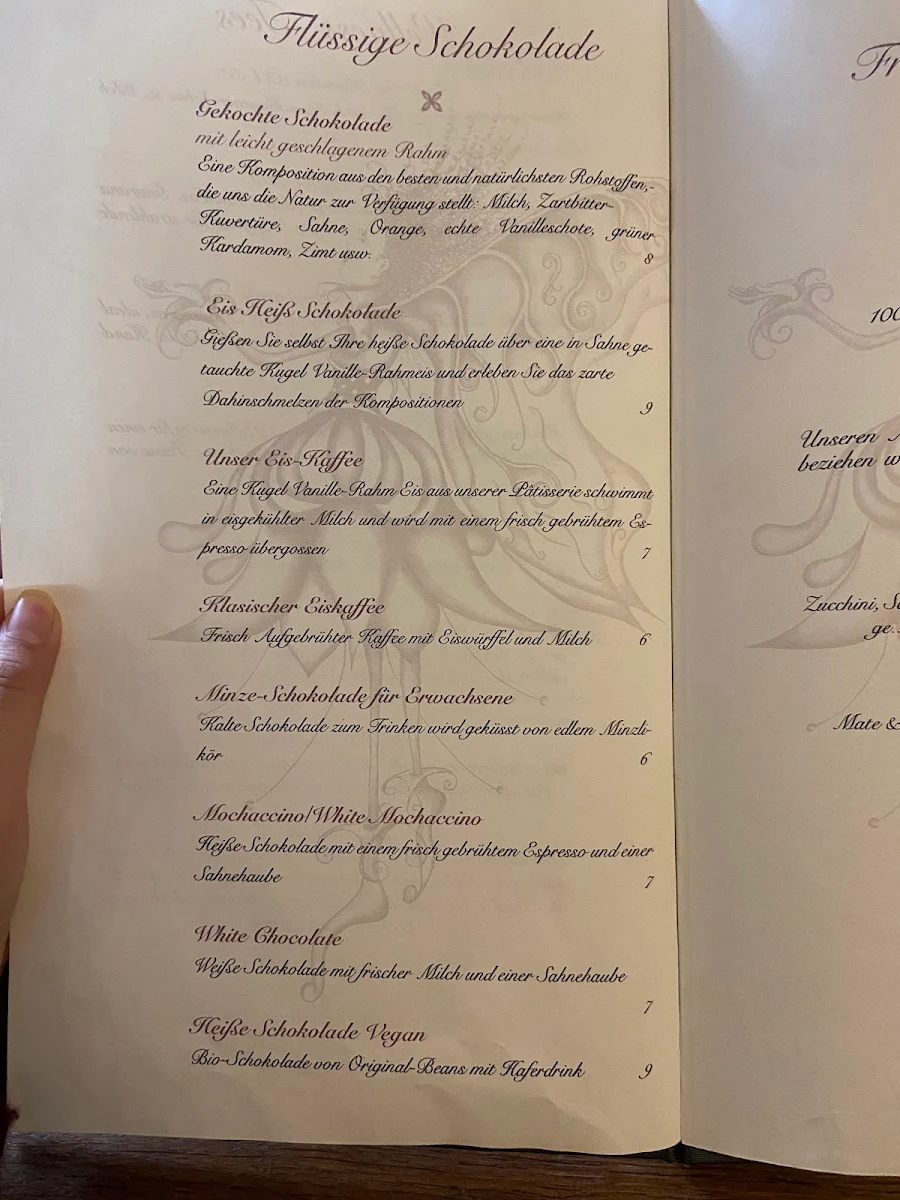 Flüssige Schokolade
Gekochte Schokolade
mit leicht geschlagenem Rahm
Eine Komposition aus den besten und natürlichsten Rohstoffen,-
die uns die Natur zur Verfügung stellt: Milch, Zartbitter-
Kuvertüre, Sahne, Orange, echte Vanilleschote, grüner
Kardamom, Zimt usw. 8
Eis Heiß Schokolade
Gießen Sie selbst Ihre heiße Schokolade über eine in Sahne ge-
tauchte Kugel Vanille-Rahmeis und erleben Sie das zarte
Dahinschmelzen der Kompositionen 9
Unser Eis-Kaffee
Eine Kugel Vanille-Rahm Eis aus unserer Pâtisserie schwimmt
in eisgekühlter Milch und wird mit einem frisch gebrühtem Es-
presso übergossen 7
Klasischer Eiskaffee
Frisch Aufgebrühter Kaffee mit Eiswürffel und Milch 6
Minze-Schokolade für Erwachsene
Kalte Schokolade zum Trinken wird geküsst von edlem Minzli-
kör 6
Mochaccino/White Mochaccino
Heiße Schokolade mit einem frisch gebrühtem Espresso und einer
Sahnehaube 7
White Chocolate
Weiße Schokolade mit frischer Milch und einer Sahnehaube
7
Heiße Schokolade Vegan
Bio-Schokolade von Original-Beans mit Haferdrink 9
Fr
100
Unseren
beziehen w
Zucchini,
ge..
Mate &